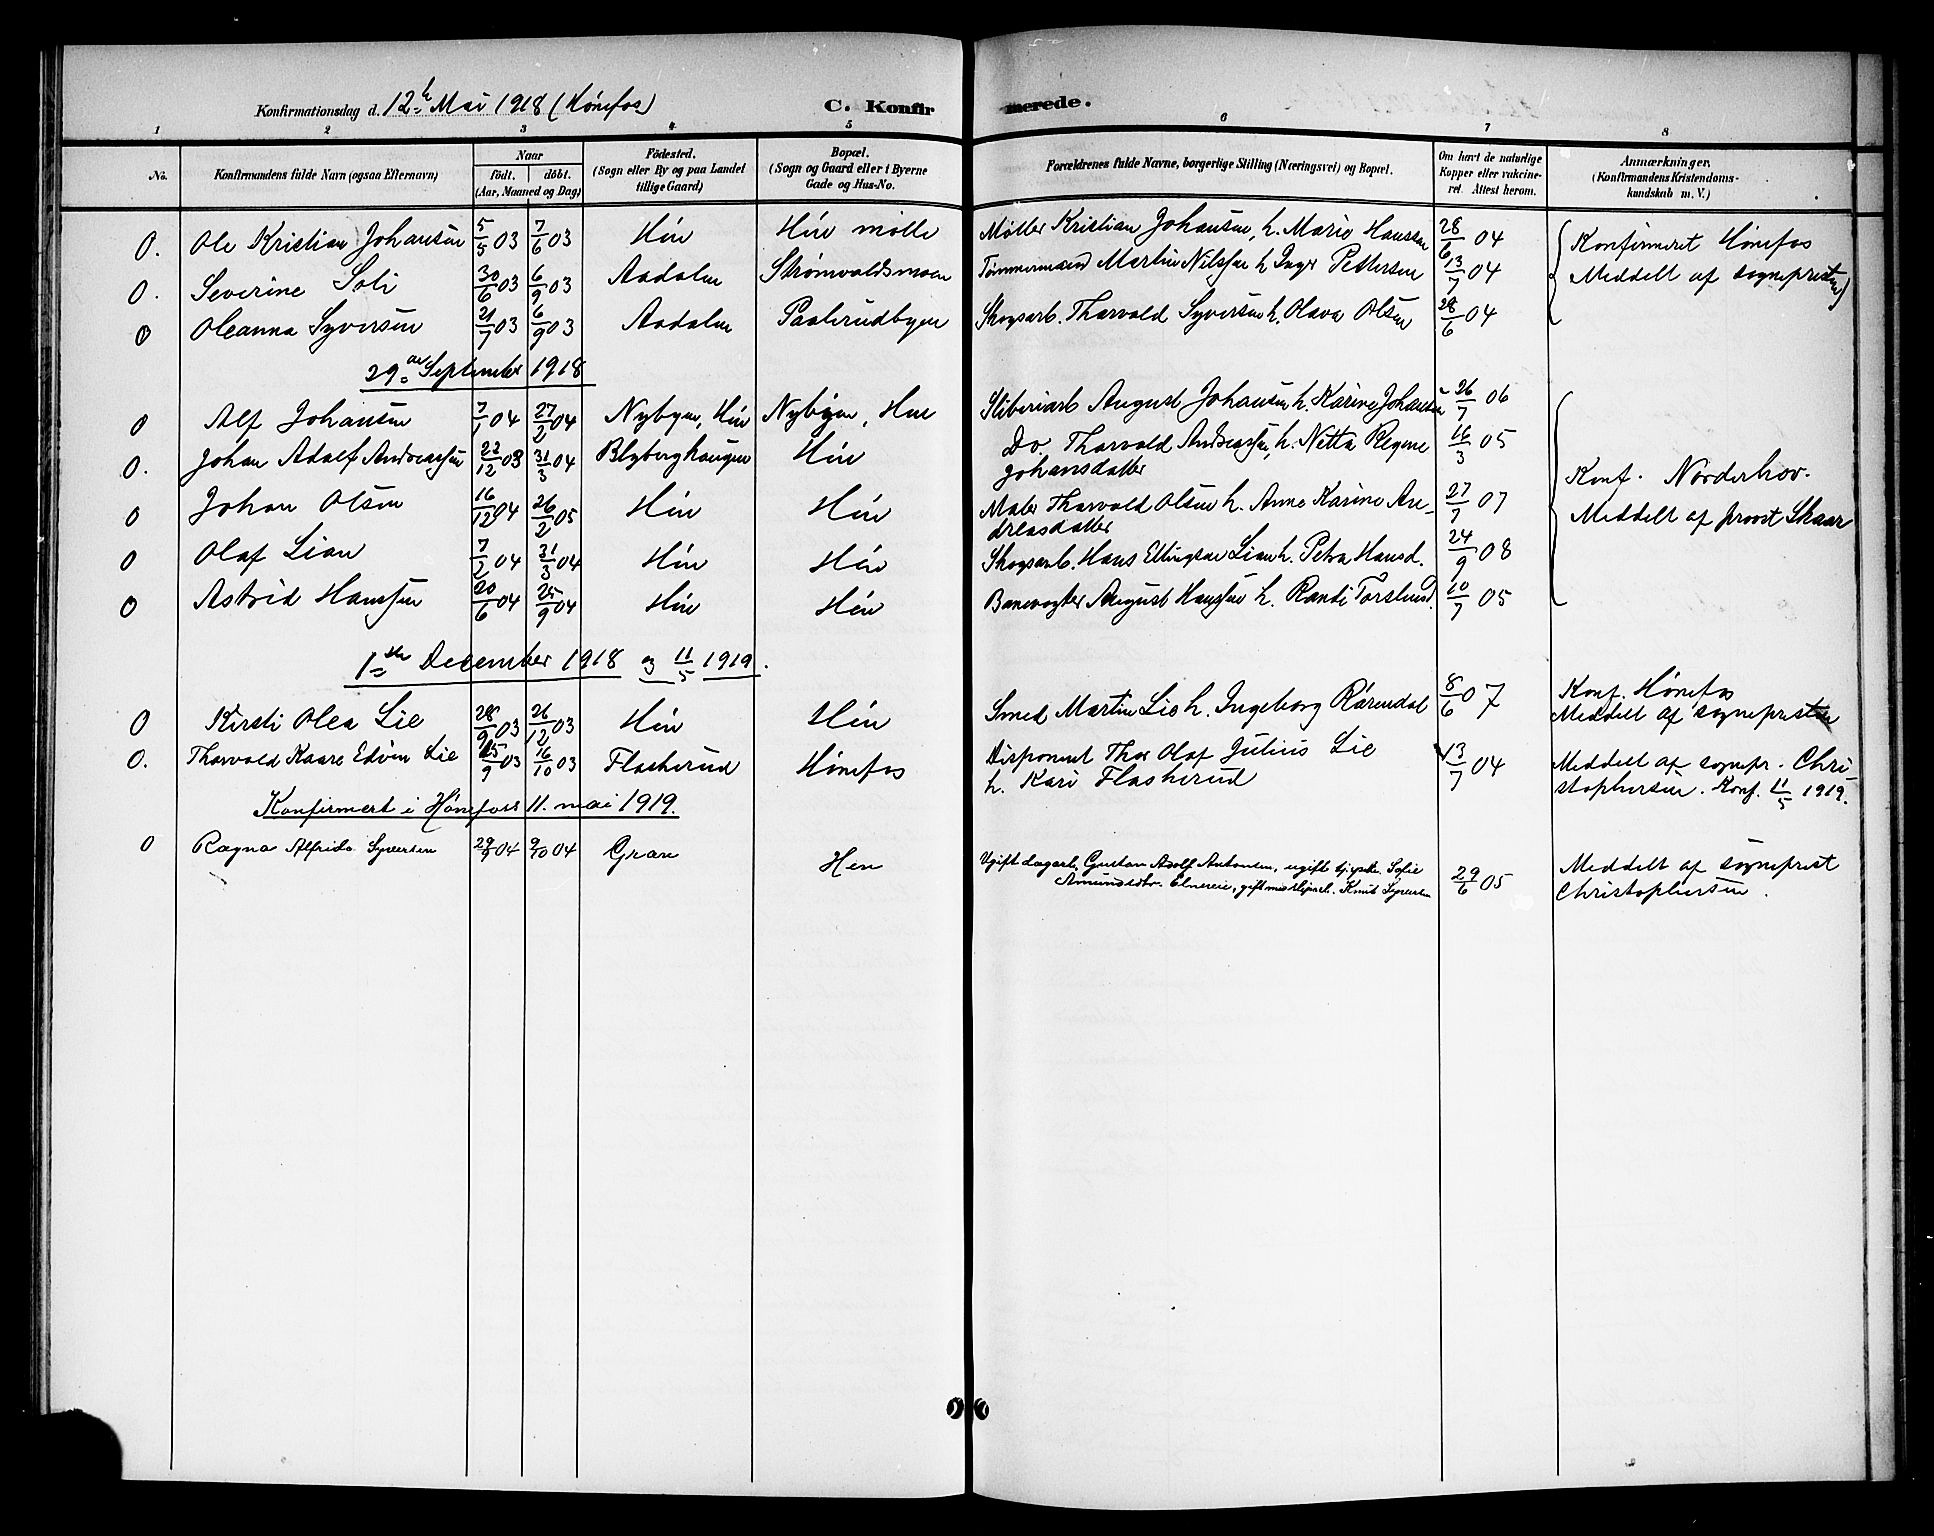 Konfirmationsdag d. 12te Mai 1918 (Hønefos) C. Konfirmerede.
1 2 3 4 5 6 7 8
No. Konfirmandens fulde Navn (ogsaa Efternavn) Naar født. døbt. (Aar, Maaned og Dag) Fødested. (Sogn eller By og paa Landet tillige Gaard) Bopæl. (Sogn og Gaard eller i Byerne Gade og Hus-No. Forældrenes fulde Navne, borgerlige Stilling (Næringsvei) og Bopæl. Om havt de naturlige Kopper eller vakcineret. Attest herom. Anmærkninger. (Konfirmandens Kristendomskundskab m. V.)
0. Ole Kristian Johansen 5/5 03 7/6 03 Hén Hén mølle Møller Kristian Johansen, h. Marie Hanssen 28/6 04 Konfirmeret Hønefos
0. Severine Soli 30/6 03 6/9 03 Aadalen Strømvoldsmoen Tømmermand Martin Nilssen h Inger Pettersen 13/7 04 Meddelt af sognepresten)
0 Oleanna Syversen 21/7 03 6/9 03 Aadalen Paalerudbyen Skogsarb. Thorvald Syversen h. Olava Olsen 28/6 04
29de September 1918
0 Alf Johansen 7/1 04 27/2 04 Nybyen, Hén Nybyen, Hén Sliberiarb August Johansen h. Karine Johansen 26/7 06
0. Johan Adolf Andreassen 22/12 03 31/3 04 Blyberghaugen Hén Do. Thorvald Andreassen, h. Netta Regine 16/3 05
Johansdatter Konf. Norderhov.
0 Johan Olsen 16/12 04 26/2 05 Hén Hén Maler Thorvald Olsen h. Anne Karine An- 27/7 07 Meddelt af provst Skaar
dreasdatter
0 Olaf Lian 7/2 04 31/3 04 Hén Hén Skogsarb. Hans Ellingsen Lian h. Petra Hansd. 24/9 08
0 Astrid Hanssen 20/6 04 25/9 04 Hén Hén Banevogter August Hanssen h. Randi Torslund. 10/7 05
1ste December 1918 og 11/5 1919.
0 Kirsti Olea Lie 28/9 03 26/12 03 Hén Hén Smed Martin Lie h. Ingeborg Rørendal 8/6 07 Konf. Hønefos
Meddelt af sognepresten
0. Thorvald Kaare Edvin Lie 15/9 03 16/10 03 Flaskerud Hønefos Disponent Thor Olaf Julius Lie 13/7 04 Meddelt af sognepr. Chri-
h. Kari Flaskerud stophersen. Konf. 11/5 1919.
Konfirmert i Hønefoss 11. mai 1919.
0 Ragna Alfrida Syversen 29/9 04 9/10 04 Gran Hen Ugift dagarb. Gustav Adolf Antonsen, ugift tj.pike Sofie 29/6 05 Meddelt af sogneprest
Amundsdtr. Elnereie, gift med sliparb. Knut Syversen Christophersen.